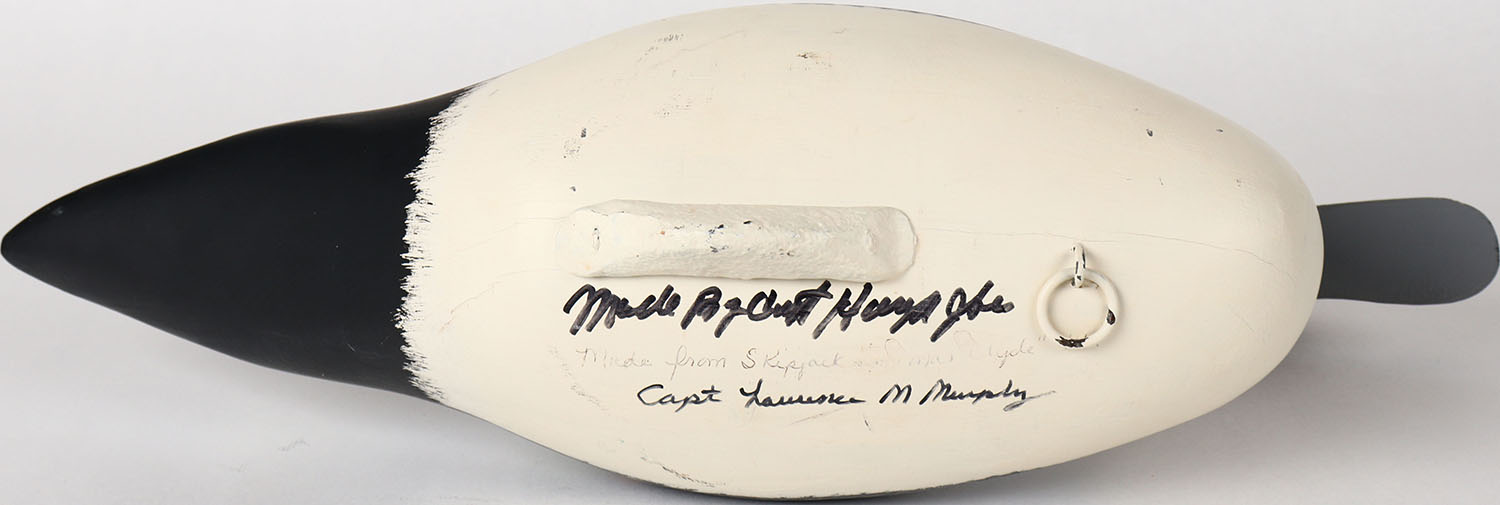 Made By Capt Harry Jobes
Made from Skipjack Clyde"
Capt Lawrence M Murphy